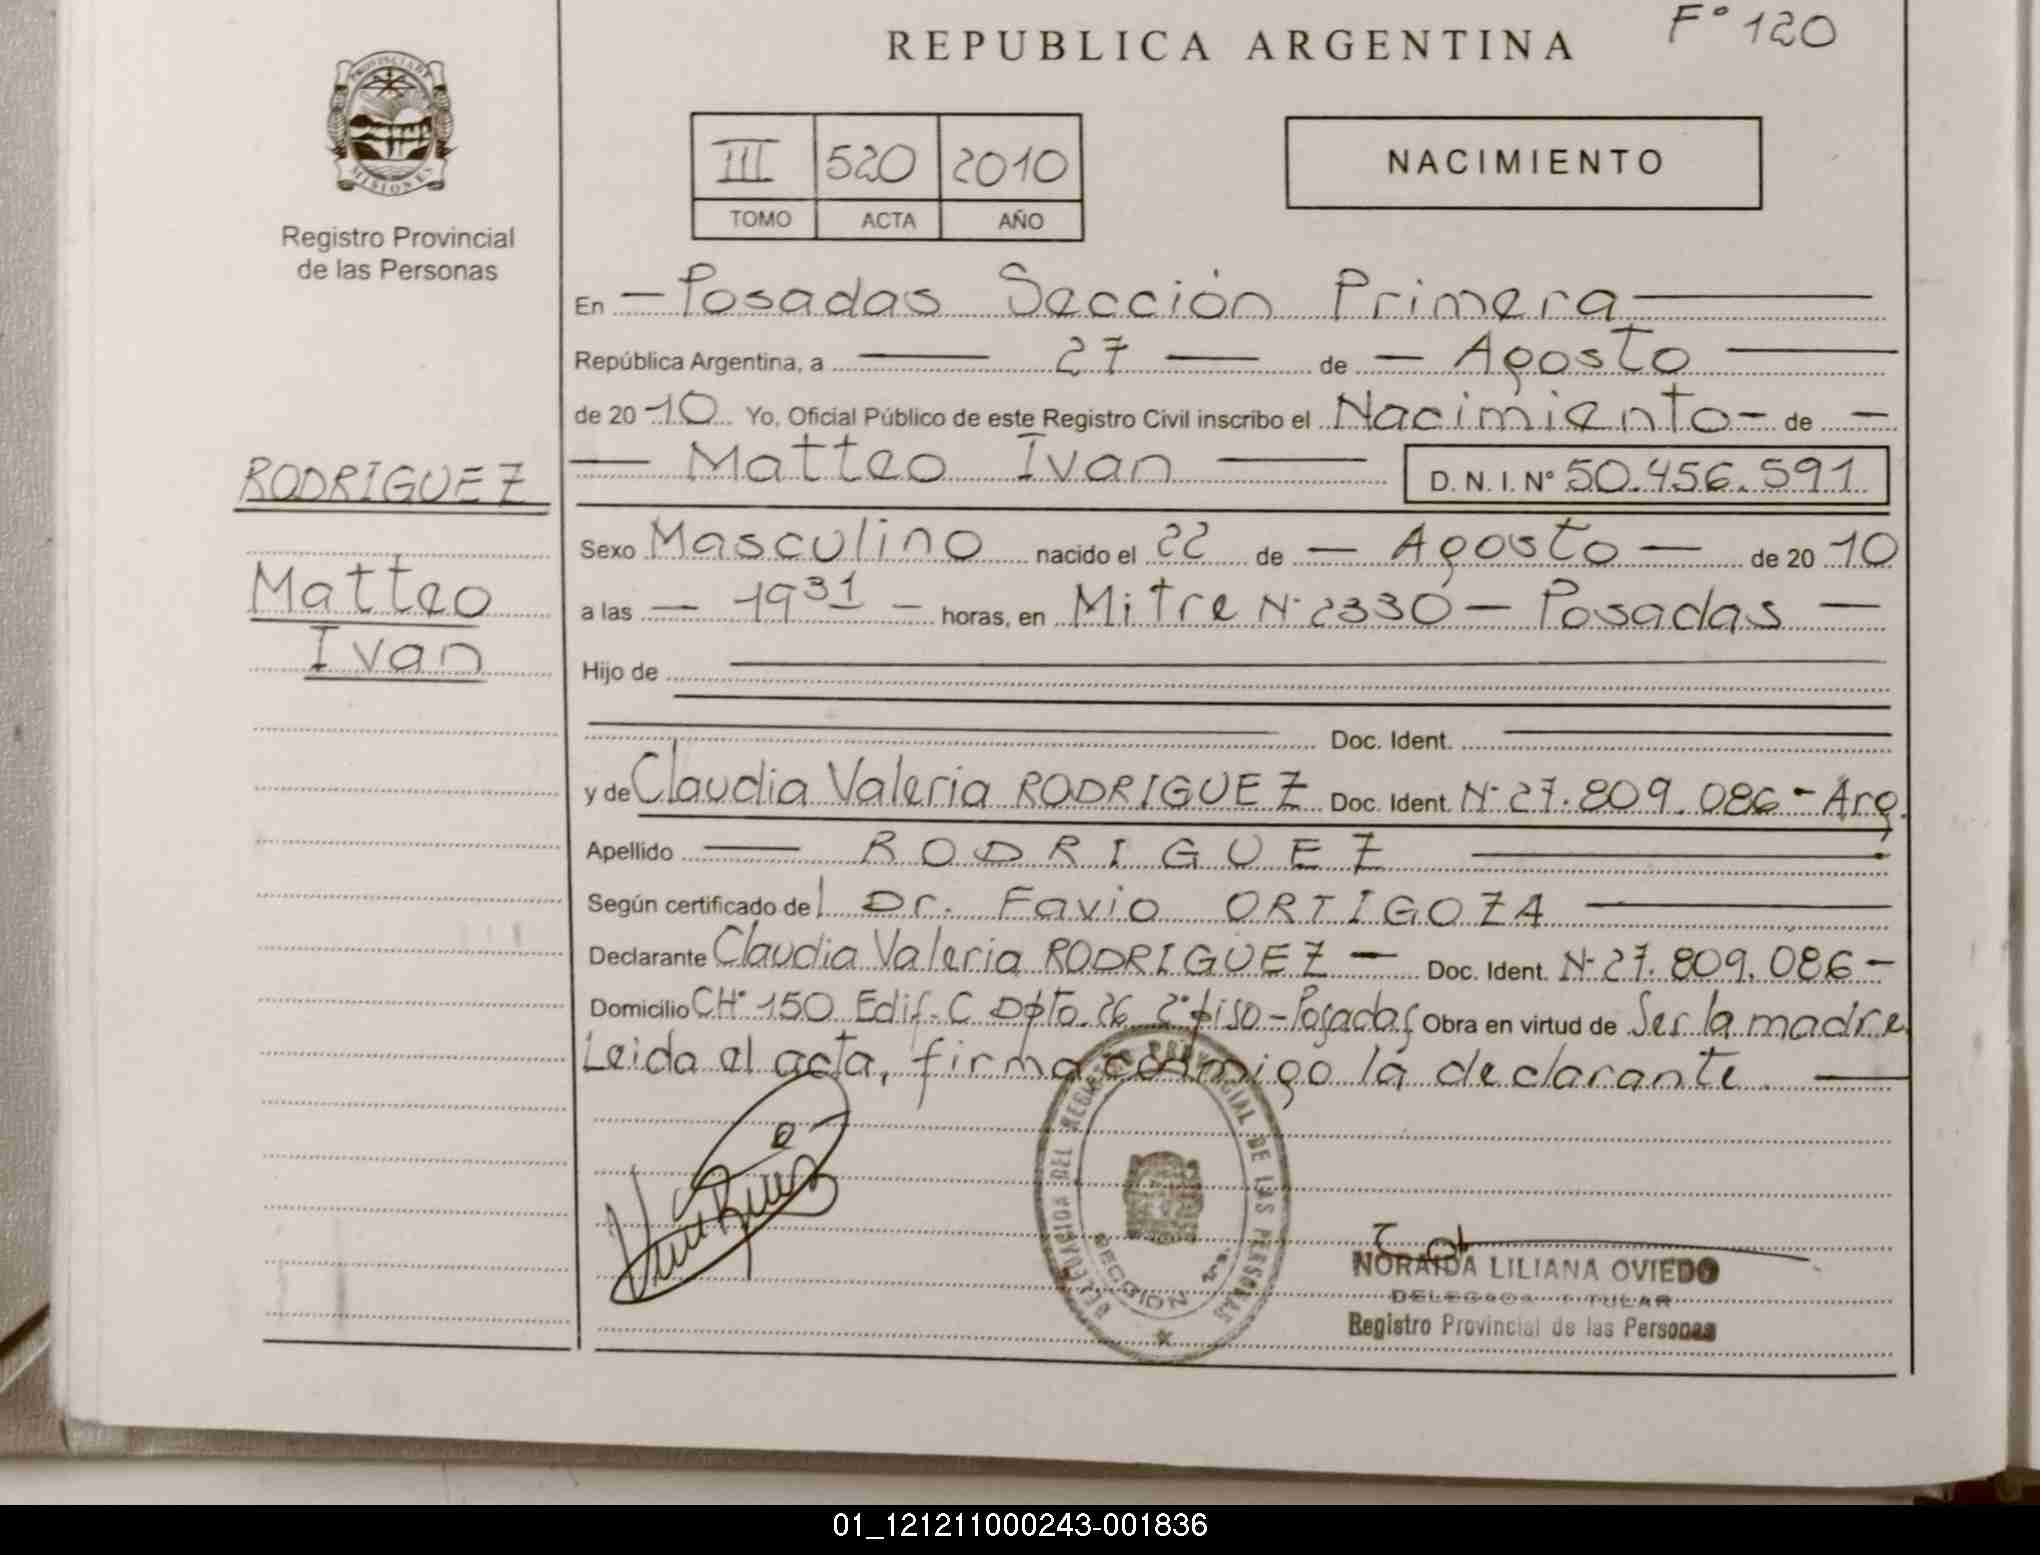 F° 120
REPUBLICA ARGENTINA
PROVINCIA DE
MISIONES
Registro Provincial
de las Personas
III 520 2010
TOMO ACTA AÑO
NACIMIENTO
En — Posadas Sección Primera —
República Argentina, a — 27 — de — Agosto —
de 20 -10 Yo, Oficial Público de este Registro Civil inscribo el Nacimiento - de —
— Matteo Ivan — D. N. I. N° 50.456.591
RODRIGUEZ
Matteo
Ivan
Sexo Masculino nacido el 22 de — Agosto — de 20 10
a las — 19 31 — horas, en Mitre N° 2330 — Posadas —
Hijo de
Doc. Ident.
y de Claudia Valeria RODRIGUEZ Doc. Ident. N° 27.809.086 - Arg.
Apellido — RODRIGUEZ —
Según certificado del Dr. Favio ORTIGOZA —
Declarante Claudia Valeria RODRIGUEZ — Doc. Ident. N° 27.809.086 —
Domicilio CH° 150 Edif. C Dpto. 26 2° piso - Posadas Obra en virtud de Ser la madre
Leida el acta, firma conmigo la declarante. —
DEL REGISTRO PROVINCIAL DE LAS PERSONAS
SECCION 1ra.
NORAIDA LILIANA OVIEDO
DELEGADA TITULAR
Registro Provincial de las Personas
01_121211000243-001836